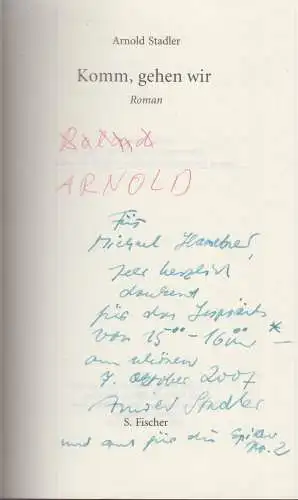 Arnold Stadler
Komm, gehen wir
Roman
ARNOLD
Für
Michael
sehr herzlich
dankend
für das Gespräch
von 15⁰⁰-16⁰⁰ * –
am schönen
7. Oktober 2007
Arnold Stadler
S. Fischer
und auch für die